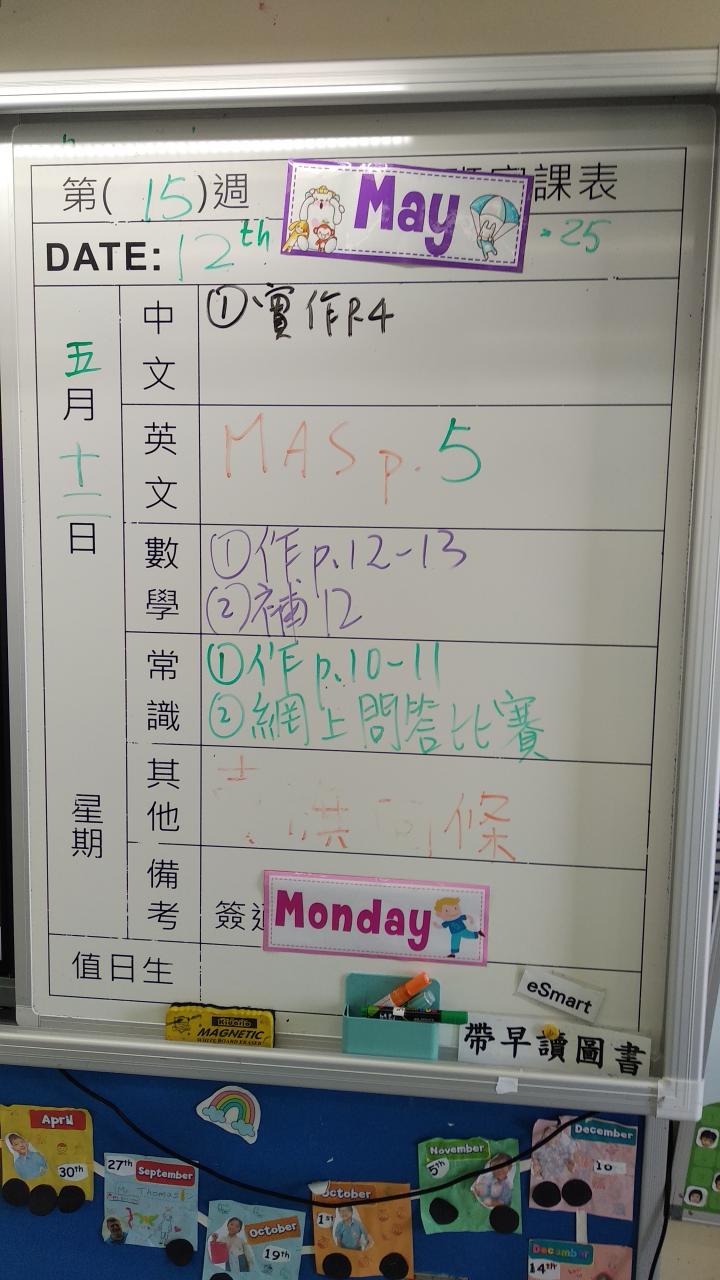 第( 15 )週
課表
May
DATE: 12th
25
五月十二日
星期
中文
①實作P.4
英文
MAS p. 5
數學
①作p.12-13
②補12
常識
①作p.10-11
②網上問答比賽
其他
條
備考
簽
Monday
值日生
eSmart
MAGNETIC
WHITE BOARD ERASER
帶早讀圖書
April
30th
27th
September
October
19th
October
1st
November
5th
December
December
14th